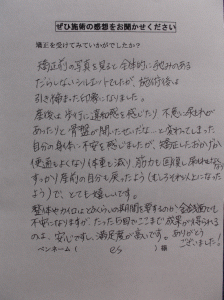 ぜひ施術の感想をお聞かせください
矯正を受けてみていかがでしたか？
矯正前の写真を見ると全体的に歪みのある
だらしないシルエットでしたが、施術後は
引き締まった印象になりました。
産後は歩行に違和感を感じたり、不意に尿もれが
あったりと骨盤が開いたせいかな…と気になってしまって、
自分の身体に不安を感じましたが、矯正したおかげか
便通もよくなり体重も減り筋力も回復し尿もれもなく
すっかり産前の自分も戻ったよう(むしろそれ以上になったよう
で)、とても嬉しいです。
整体やカイロはどれくらいの期間を要するのか金銭面でも
不安になりますが、たった5回でここまで成果が得られる
のは、安いですし、満足度が高いです。ありがとう
ございました！
ペンネーム（ es ）様